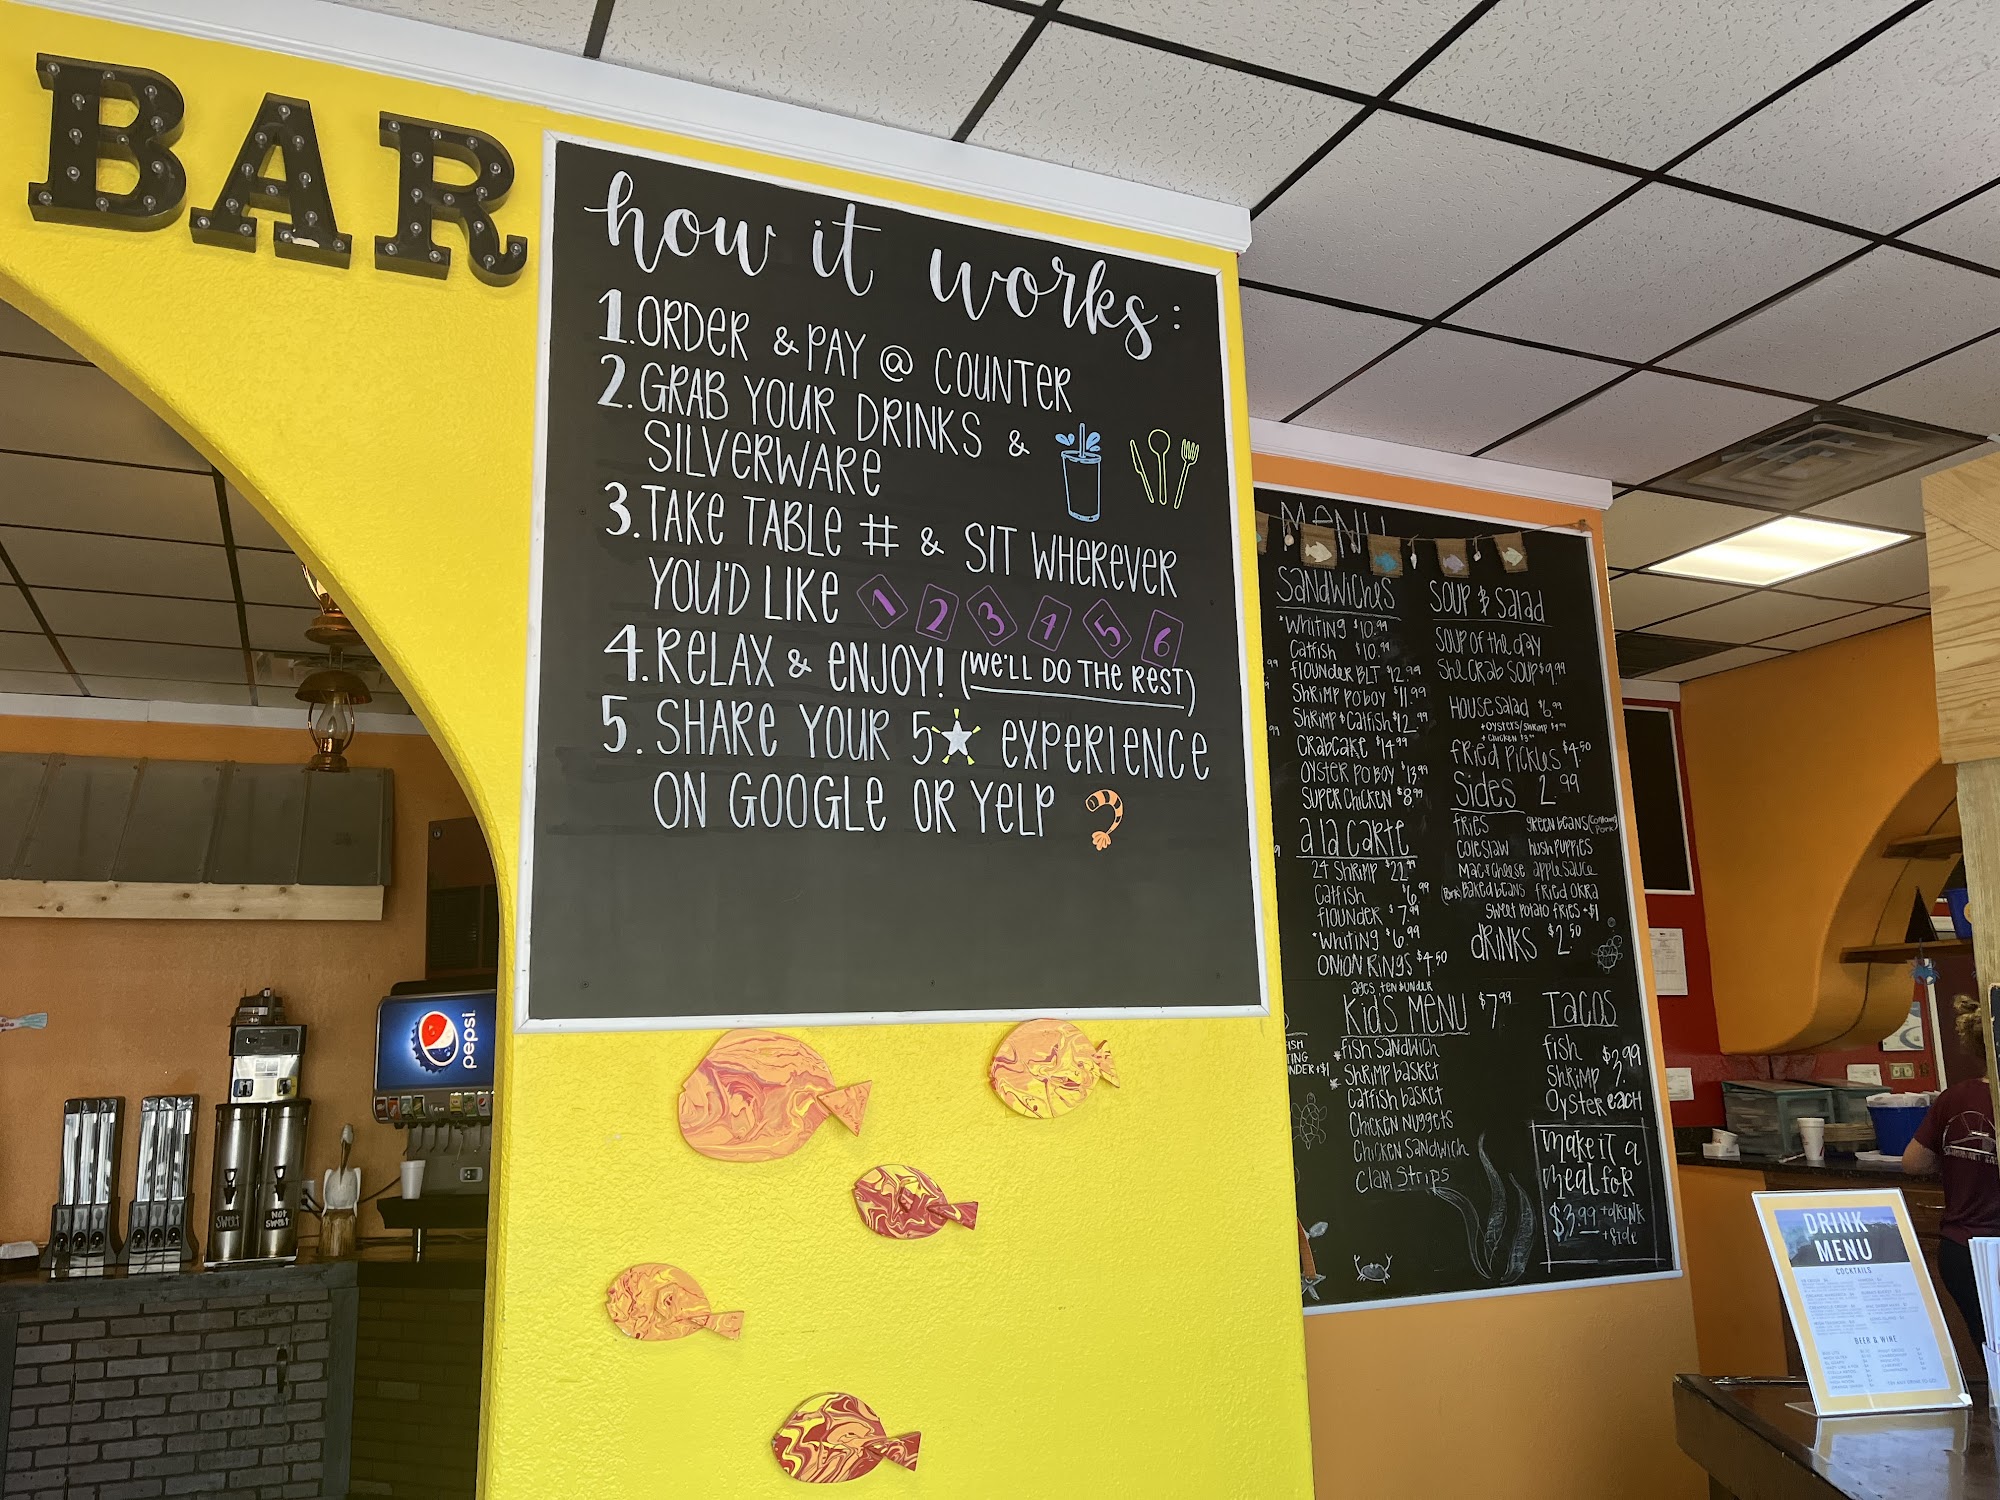 BAR
how it works:
1. ORDER & PAY @ COUNTER
2. GRAB YOUR DRINKS &
SILVERWARE
3. TAKE TABLE # & SIT WHEREVER
YOU'D LIKE 1 2 3 4 5 6
4. RELAX & ENJOY! (WE'LL DO THE REST)
5. SHARE YOUR 5★ EXPERIENCE
ON GOOGLE OR YELP
MENU
Sandwiches
*Whiting $10.99
Catfish $10.99
Flounder BLT $12.99
Shrimp poboy $11.99
Shrimp & Catfish $12.99
Crabcake $14.99
Oyster poboy $13.99
Super Chicken $8.99
a la carte
24 Shrimp $22.99
Catfish $6.99
Flounder $7.99
*Whiting $6.99
Onion Rings $4.50
ages ten & under
Kid's Menu $7.99
*Fish Sandwich
*Shrimp basket
Catfish basket
Chicken nuggets
Chicken Sandwich
Clam Strips
Soup & Salad
Soup of the day
She Crab Soup $9.99
House salad $6.99
+ Oysters/Shrimp
+ Chicken
Fried Pickles $4.50
Sides 2.99
Fries green beans (Contains Pork)
Coleslaw hushpuppies
Mac & cheese applesauce
(Pork) Baked beans fried okra
Sweet potato fries +$1
drinks $2.50
Tacos
fish $3.99
Shrimp
Oyster each
make it a
meal for
$3.99 + drink
+ side
pepsi
SWEET
NOT SWEET
DRINK
MENU
COCKTAILS
BEER & WINE